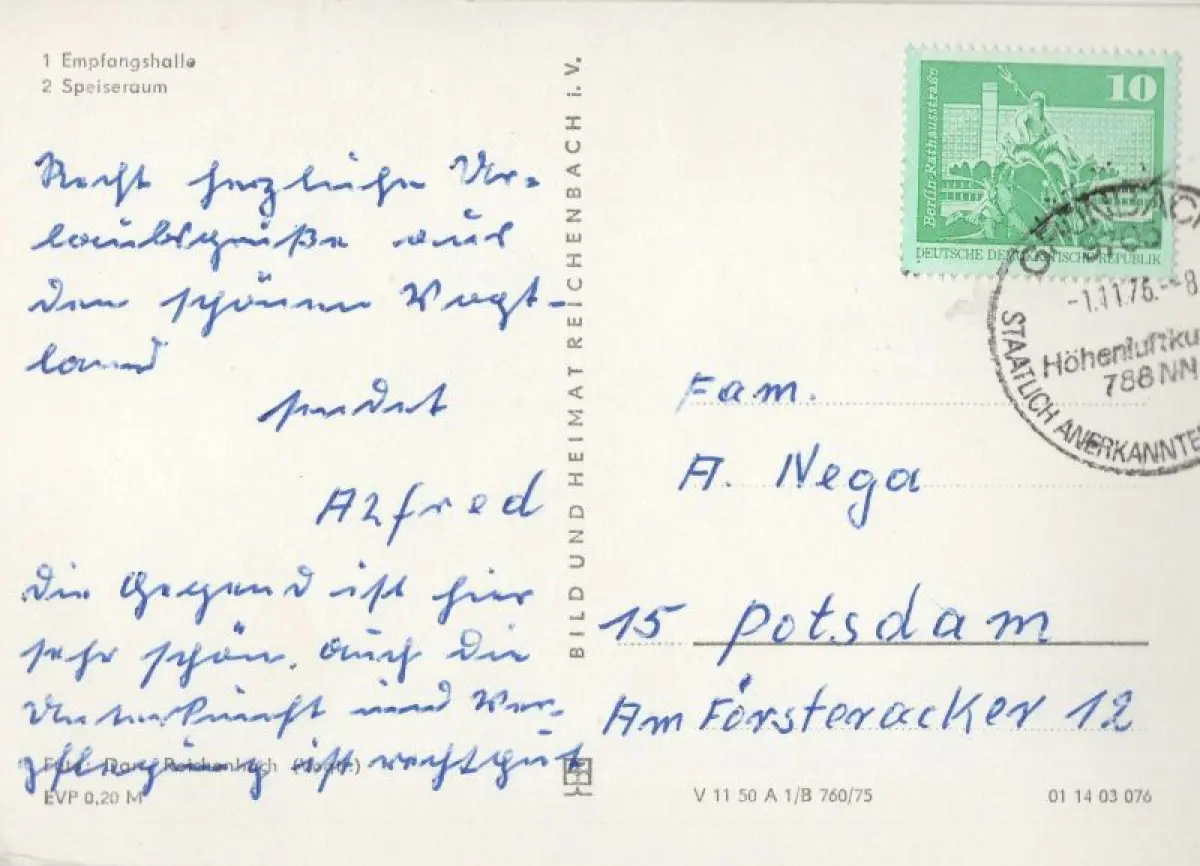 1 Empfangshalle
2 Speiseraum
Recht herzliche Ur-
laubsgrüße aus
dem schönen Vogt-
land
sendet
Alfred
Die Gegend ist hier
sehr schön. Auch die
Unterkunft und Ver-
pflegung ist recht gut
Foto: Reichenbach (Vogtl.)
EVP 0,20 M
BILD UND HEIMAT REICHENBACH i. V.
10
Berlin-Rathausstraße
DEUTSCHE DEMOKRATISCHE REPUBLIK
GRÜNBACH
9703
-1.11.76.--8
Höhenluftku
786 NN
STAATLICH ANERKANNTE
Fam.
A. Nega
15 Potsdam
Am Försteracker 12
V 11 50 A 1/B 760/75
01 14 03 076